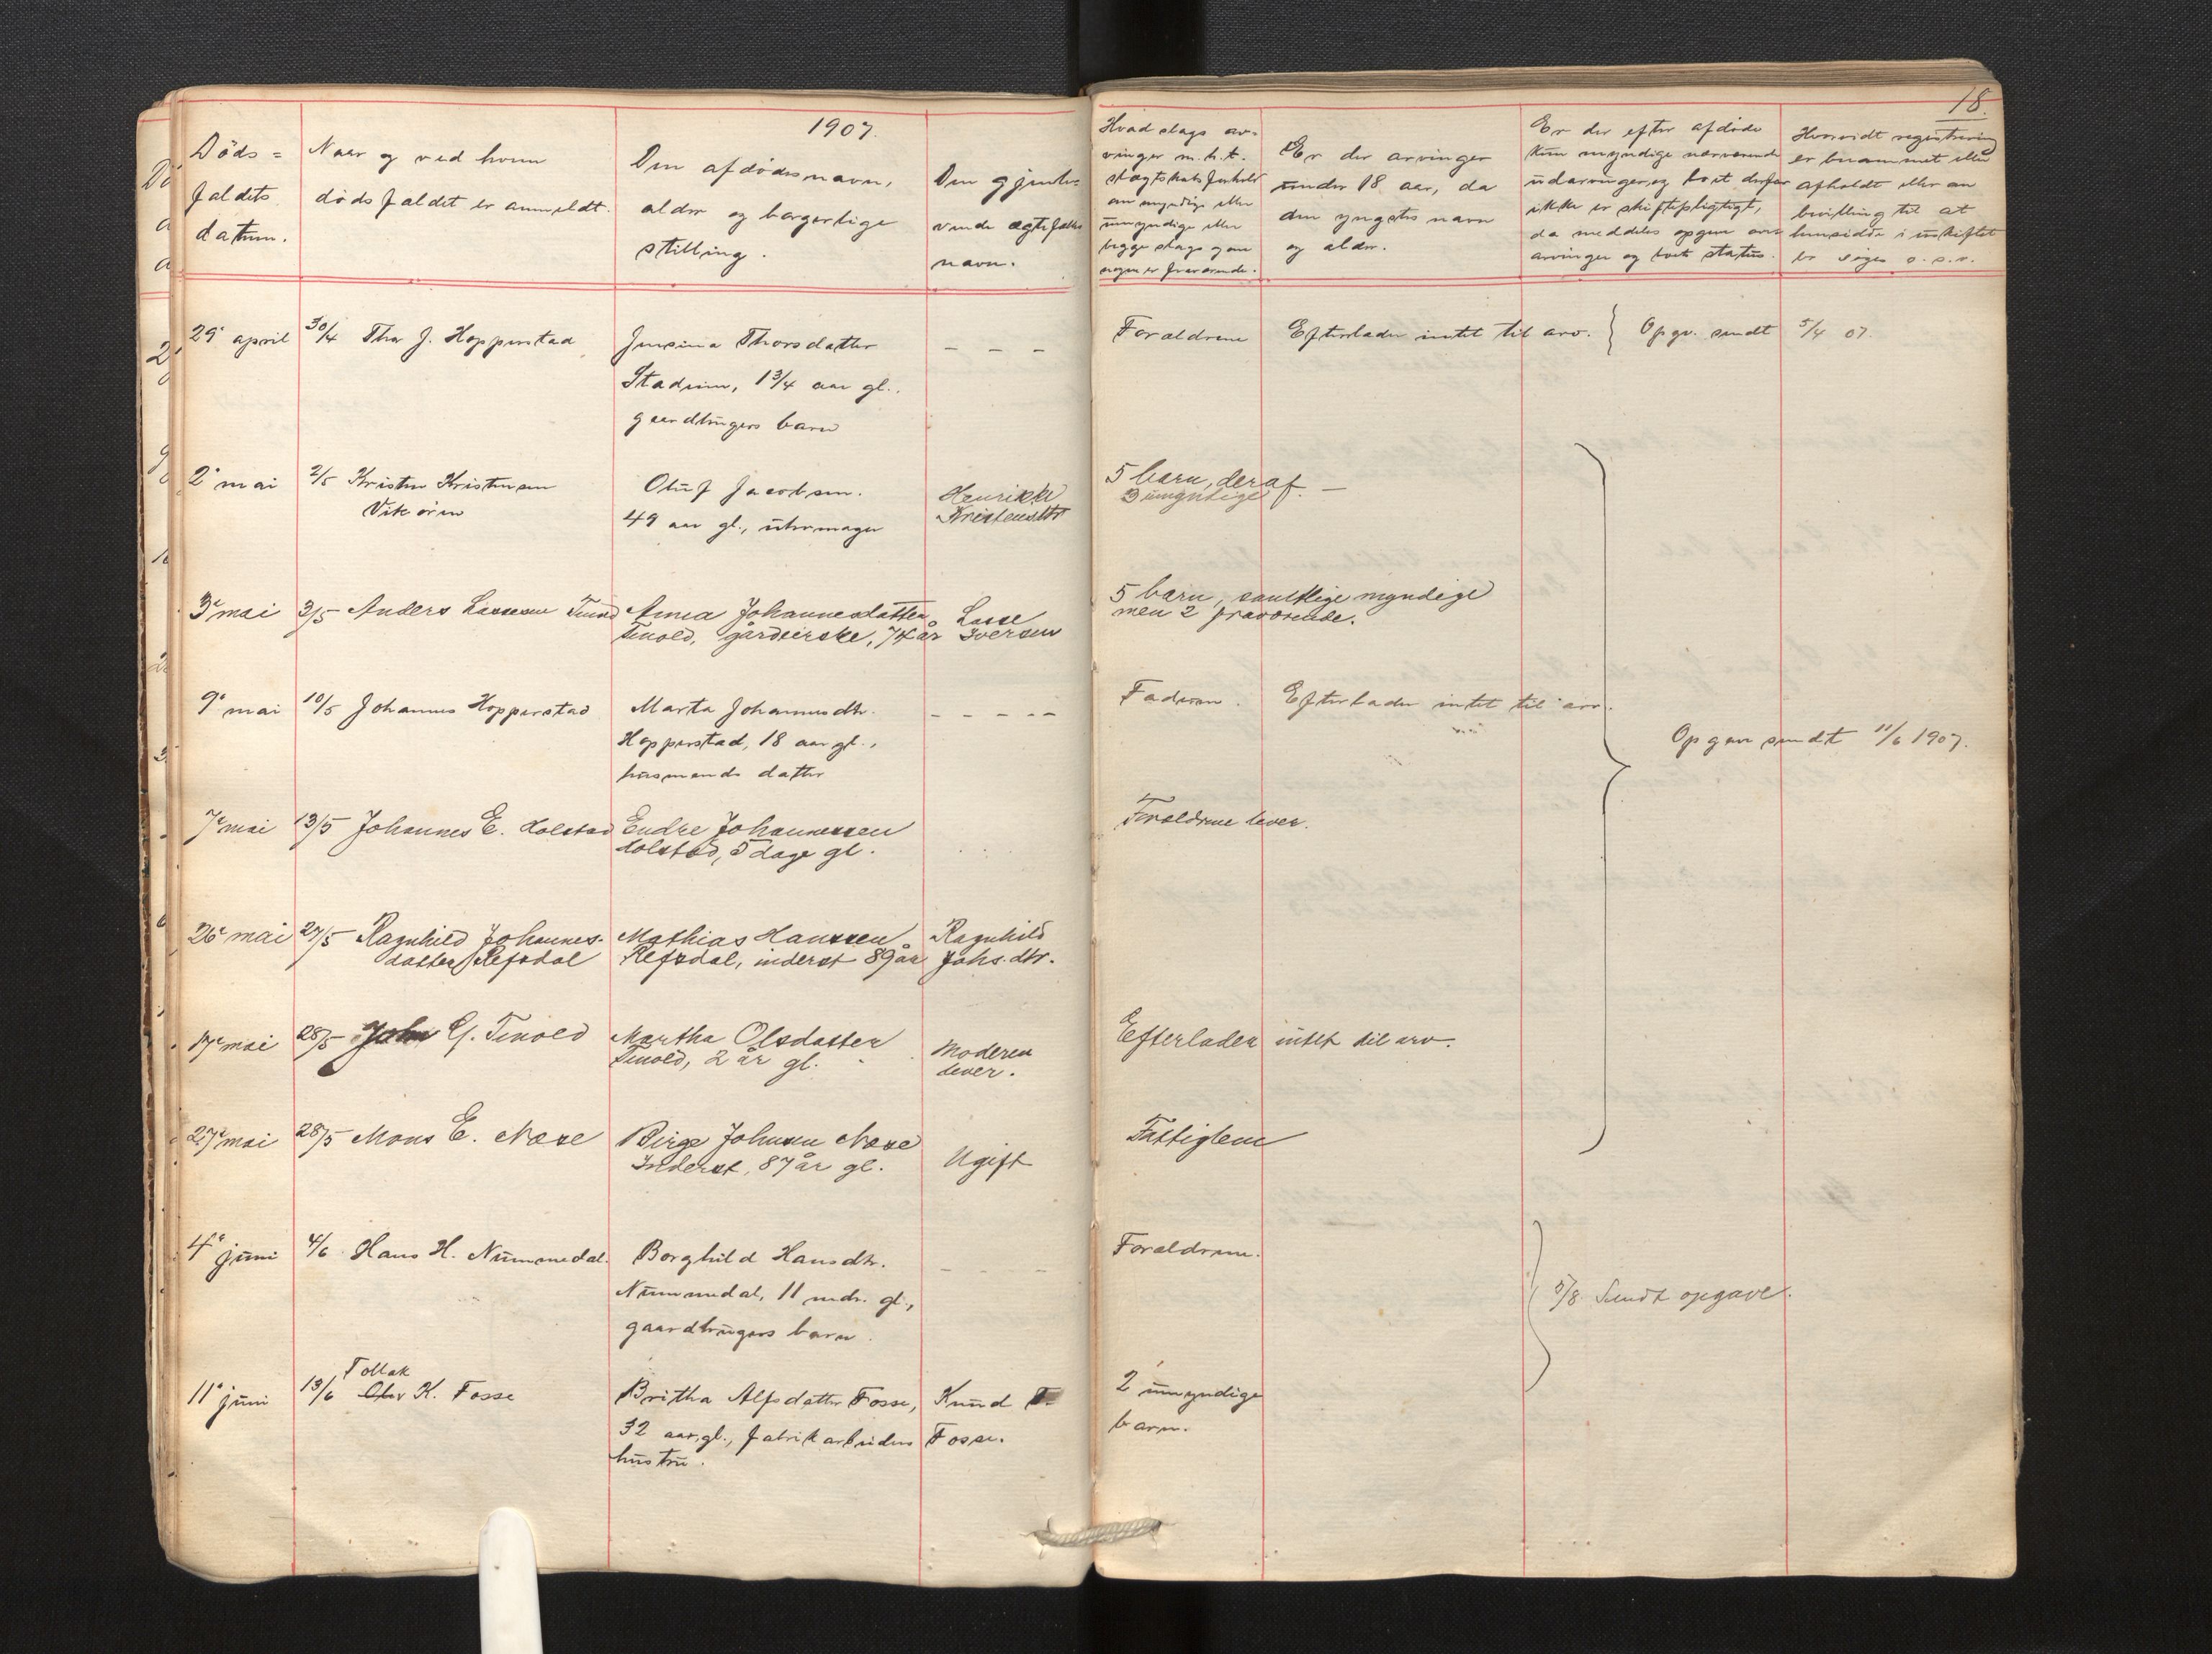 1907.
18.
Döds=
faldets
datum.
Naar og ved hvem
dödsfaldet er anmeldt.
Den afdödes navn,
alder og borgerlige
stilling.
Den gjenle-
vende ægtefælles
navn.
Hvad slags ar-
vinger m.h.t.
slægtskabsforhold
om myndige eller
umyndige eller
begge slags og om
nogen er fraværende.
Er der arvinger
under 18 aar, da
den yngstes navn
og alder.
Er der efter afdöde
kun myndige nærværende
udarvinger, og boet derfor
ikke er skiftepligtigt,
da meddeles opgave over
arvinger og boets status.
Hvorvidt registrering
er berammet eller
afholdt eller om
bevilling til at
hensidde i uskiftet
bo söges o.s.v.
29' april 30/4 Thor J. Hopperstad Jensina Thorsdatter – – – Forældrene Efterlader intet til arv. } Opgv. sendt 5/4 07.
Stadium, 1 3/4 aar gl.,
gaardbrugers barn
2' mai 2/5 Kristen Kristensen Oluf Jacobsen. Henrikke 5 barn, deraf. –
Vikören 49 aar gl., uhrmager Kristensdtr 3 umyntige
3' mai 3/5 Anders Lassesen Tenold Anna Johannesdatter Lasse 5 barn, samtlige myndige
Tenold, gårdeierske, 74 år Iversen men 2 fraværende.
9' mai 10/5 Johannes Hopperstad Marta Johannesdtr. – – – – – Faderen. Efterlader intet til arv.
Hopperstad, 18 aar gl.,
husmands datter
Opgave sendt 11/6 1907.
7' mai 13/5 Johannes E. Holstad Endre Johannessen Foreldrene lever.
Holstad, 5 dage gl.
26' mai 27/5 Ragnhild Johannes- Mathias Hanssen Ragnhild
datter Refsdal Refsdal, inderst 89 år Johs. dtr.
17' mai 28/5 John G. Tenold Martha Olsdatter Moderen Efterlader intet til arv.
Tenold, 2 år gl. lever.
27' mai 28/5 Mons E. Nese Birge Johnsen Nese Ugift Fattiglem
Inderst, 87 år gl.
4' juni 4/6 Hans H. Nummedal. Borghild Hansdtr. – – – Forældrene.
Nummedal, 11 mdr. gl.,
gaardbrugers barn.
5/8 Sendt opgave.
Tollak
11' juni 13/6 Olav K. Fosse Britha Alfsdatter Fosse, Knud T. 2 umyndige
32 aar gl., fabrikarbeiders Fosse. barn.
hustru.